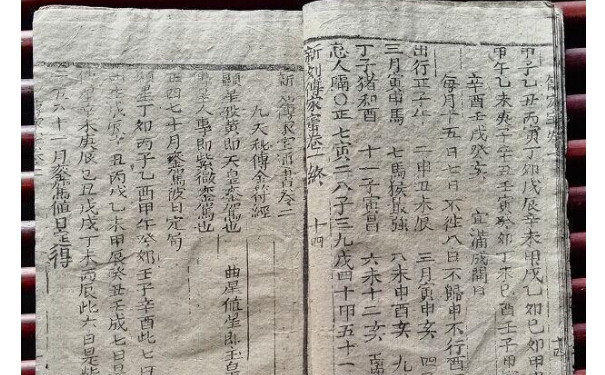 甲子乙丑丙寅丁卯戊辰辛未甲戌乙卯己卯甲申
甲午乙未庚子辛丑壬寅癸卯丁未己酉壬子甲
辛酉壬戌癸亥 宜滿成開日
每月十五日七日不往八日不歸申不行酉
出行正子午 二申丑未辰 三月寅申亥 四
三月寅申馬 七馬猴最強 八未申酉亥 九
丁子猪和酉 十一子寅昌 六未十二亥
忌人隔〇正七寅二八子三九戌四十申五十一
新刻傳家寳卷終 十四
新刻傳家寳通書卷二
九天秘傳金符經
顯星煞貢即天皇鑾駕也 曲星值星即玉皇
專星人專即紫微鑾駕也
正四七十月鑾駕彼日定局
顯星丁卯丙子乙酉甲午癸卯壬子辛酉此七日
丑丙戌乙未甲辰癸丑壬戌七日是
辛未庚辰己丑戊戌丁未丙辰此六日是
十一月鑾駕值日定得